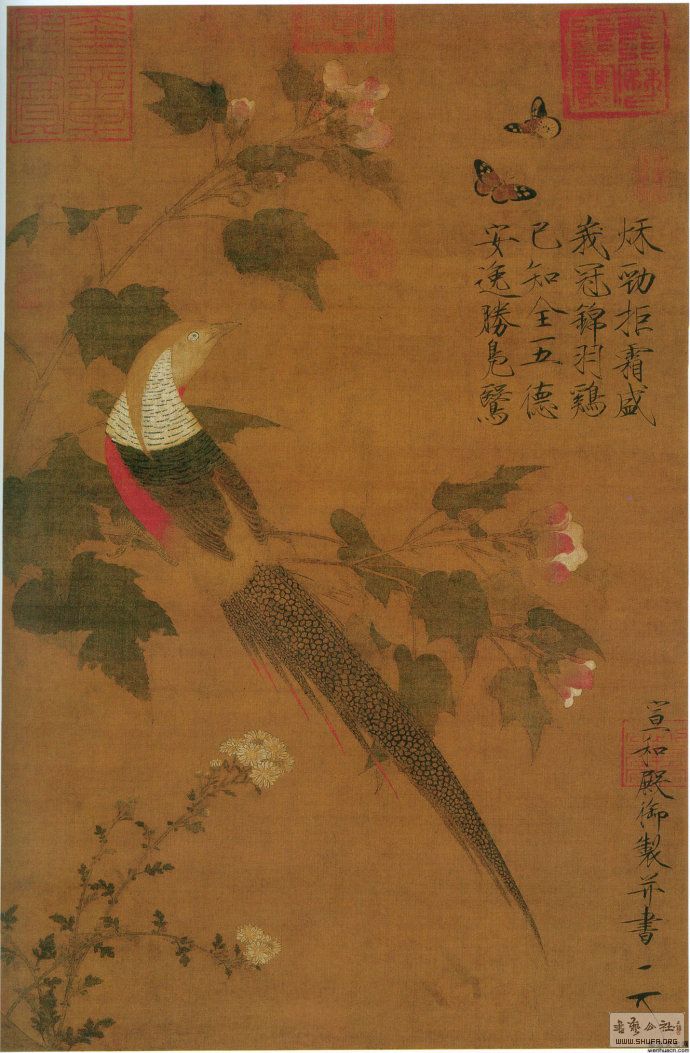 秋勁拒霜盛
峩冠錦羽鷄
已知全五德
安逸勝鳧鷖
宣和殿御製并書
书艺公社
WWW.SHUFA.ORG
wenhuacn.com